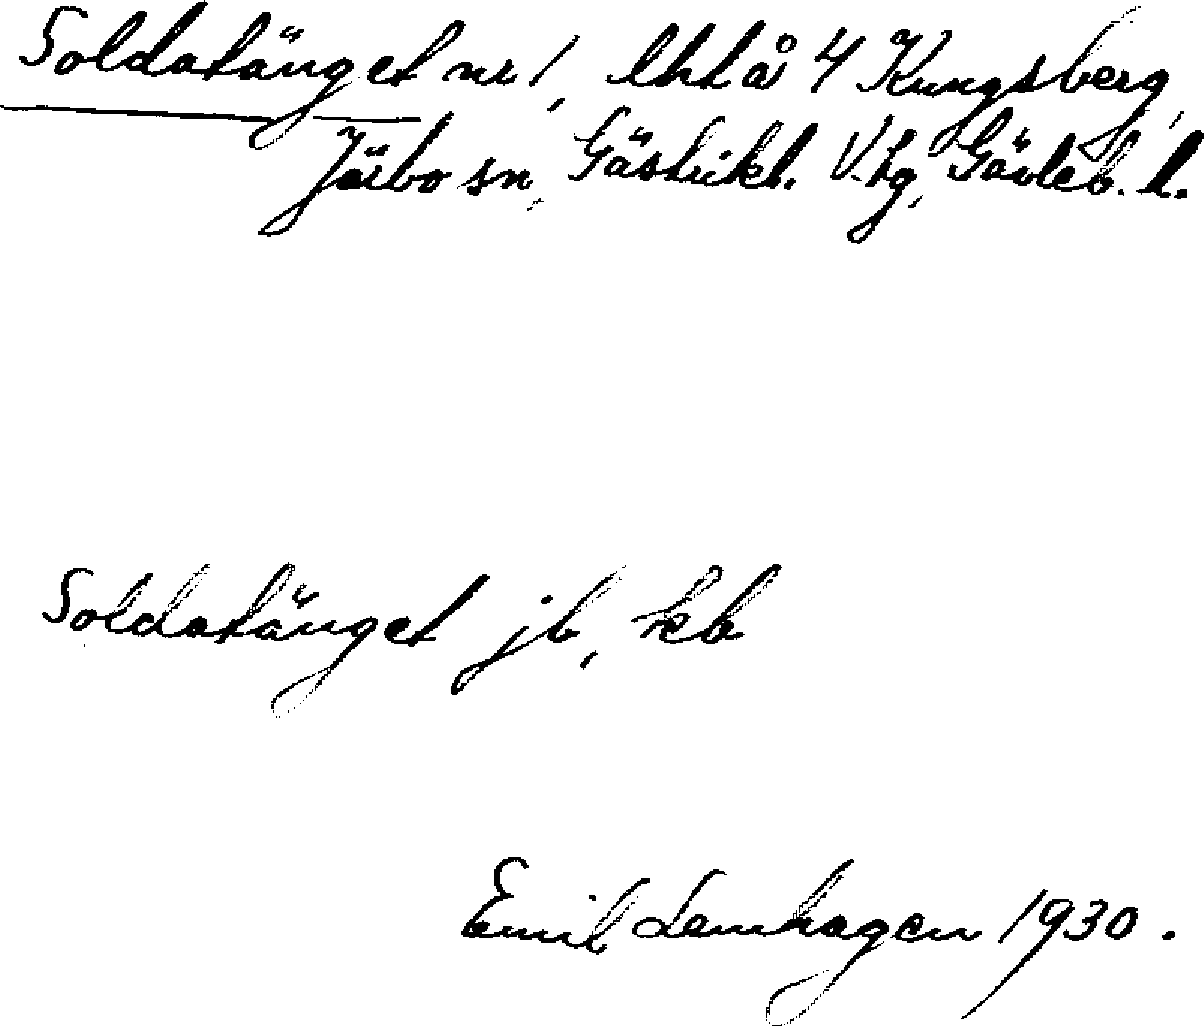 Soldatänget nr 1, lht å 4 Kungsberg,
Järbo sn, Gästrikl. V. tg, Gävleb. l.
Soldatänget jb, kb
Emil Lenhagen 1930.